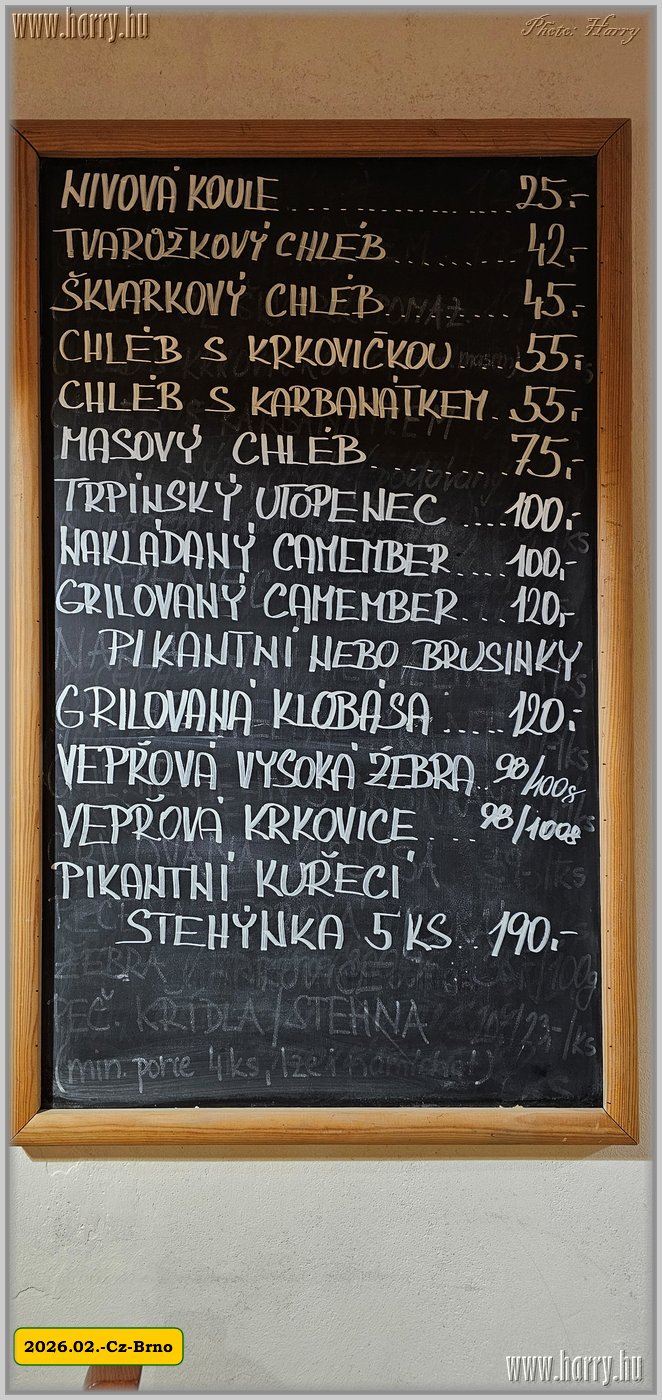 www.harry.hu
Photo: Harry
NIVOVÁ KOULE ................ 25.-
TVARŮŽKOVÝ CHLÉB ......... 42.-
ŠKVARKOVÝ CHLÉB ......... 45.-
CHLÉB S KRKOVIČKOU ... 55.-
CHLÉB S KARBANÁTKEM .. 55.-
MASOVÝ CHLÉB .......... 75,-
TRPÍNSKÝ UTOPENEC .... 100.-
NAKLÁDANÝ CAMEMBER ..... 100,-
GRILOVANÝ CAMEMBER .... 120,-
PIKANTNÍ NEBO BRUSINKY
GRILOVANÁ KLOBÁSA ..... 120.-
VEPŘOVÁ VYSOKÁ ŽEBRA .. 98/100g
VEPŘOVÁ KRKOVICE .... 98/100g
PIKANTNÍ KUŘECÍ
STEHÝNKA 5 KS .. 190.-
ŽEBRA
PEČ. KŘÍDLA/STEHNA
2026.02.-Cz-Brno
www.harry.hu